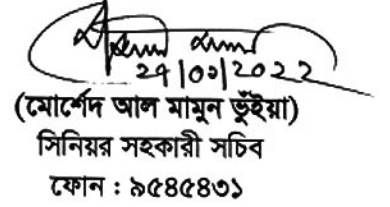 (মোর্শেদ আল মামুন ভূঁইয়া)
সিনিয়র সহকারী সচিব
ফোন : ৯৫৪৫৪৩১